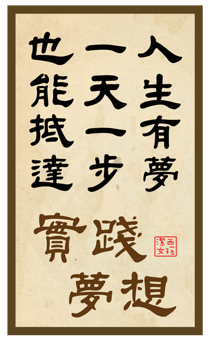 人生有夢
一天一步
也能抵達
實踐
夢想